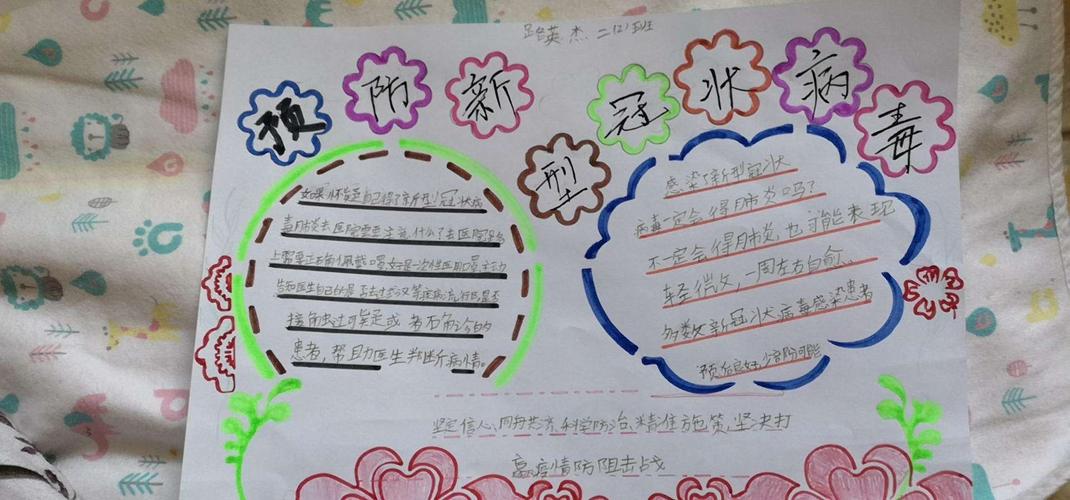 路英杰 二(2)班
预防新型冠状病毒
如果怀疑自己得了新型冠状病
毒肺炎去医院需要主意什么?去医院路
上需要正确佩戴口罩,好是一次性医用口罩,主动
告知医生自己的是否去过武汉等疫病流行区是否
接角虫过可疑或者石角诊的
患者,帮助医生判断病情。
感染了新型冠状
病毒一定会得肺炎吗?
不一定会得肺炎,也可能表现
轻微,一周左右自愈、
多数新冠状病毒感染患者
预后良好少
坚定信心、同舟共济、科学防治、精准施策、坚决打
赢疫情防阻击战